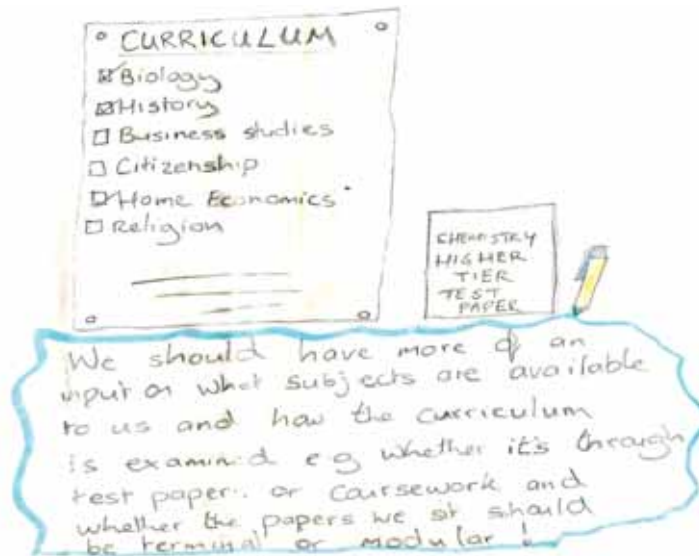 CURRICULUM
Biology
History
Business studies
Citizenship
Home Economics
Religion
CHEMISTRY
HIGHER
TIER
TEST
PAPER
We should have more of an
input on what subjects are available
to us and how the curriculum
is examined eg whether it's through
test papers or coursework and
whether the papers we sit should
be terminal or modular!